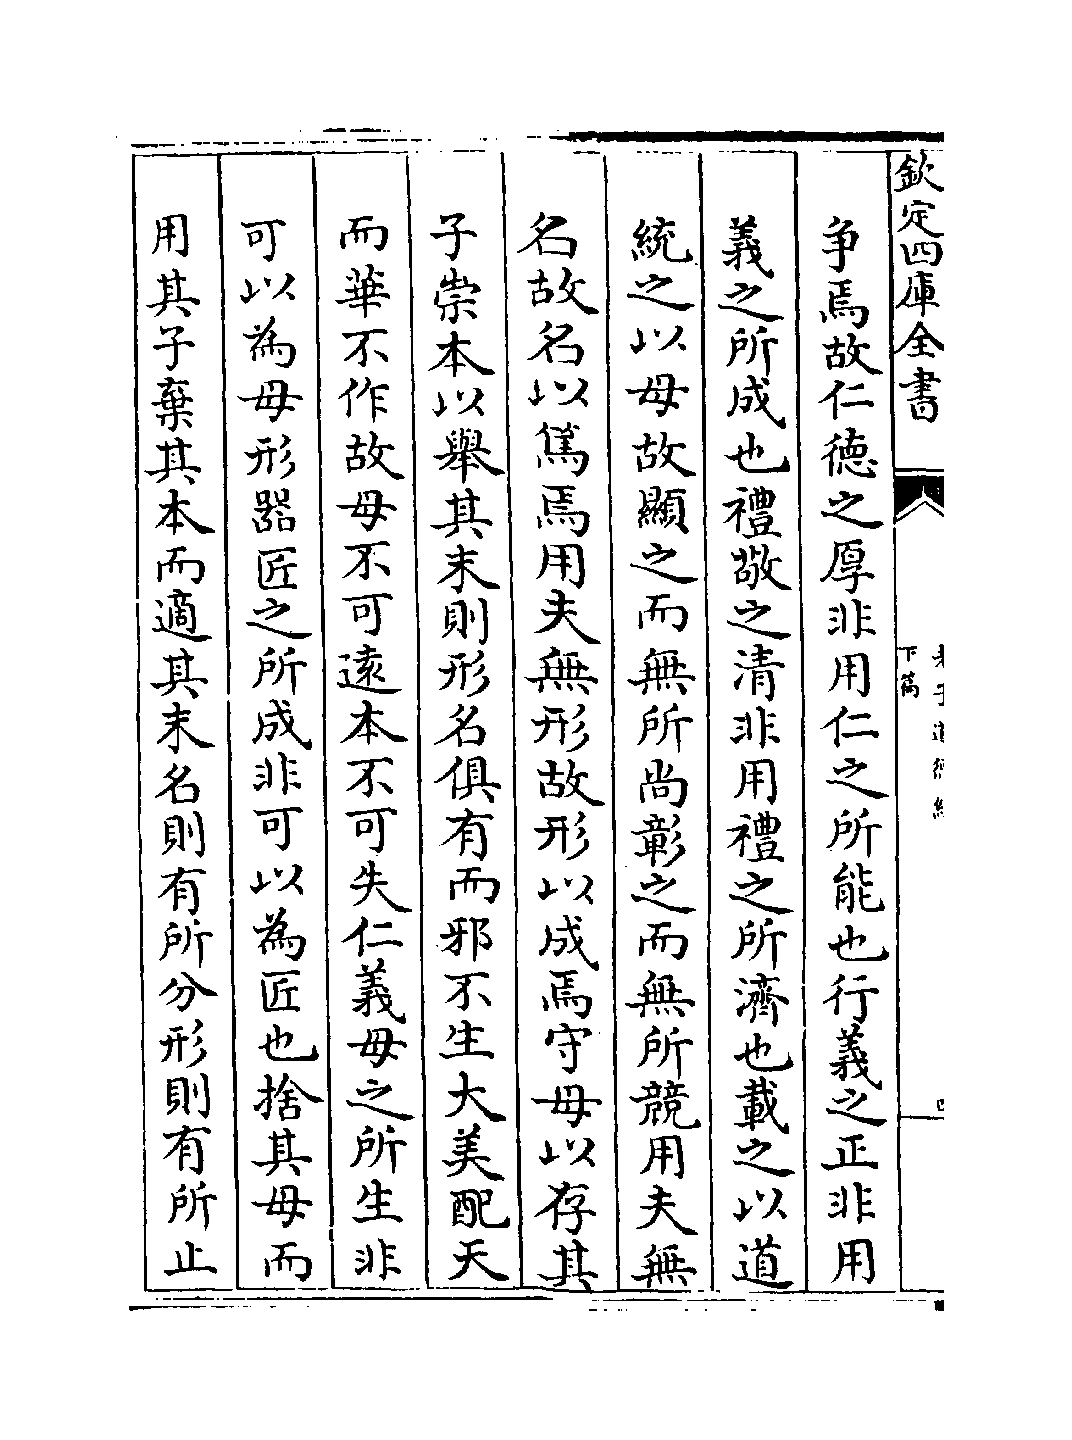 欽定四庫全書
老子道德經
下篇
四
争焉故仁德之厚非用仁之所能也行義之正非用
義之所成也禮敬之清非用禮之所濟也載之以道
統之以母故顯之而無所尚彰之而無所競用夫無
名故名以篤焉用夫無形故形以成焉守母以存其
子崇本以舉其末則形名俱有而邪不生大美配天
而華不作故母不可遠本不可失仁義母之所生非
可以為母形器匠之所成非可以為匠也捨其母而
用其子棄其本而適其末名則有所分形則有所止